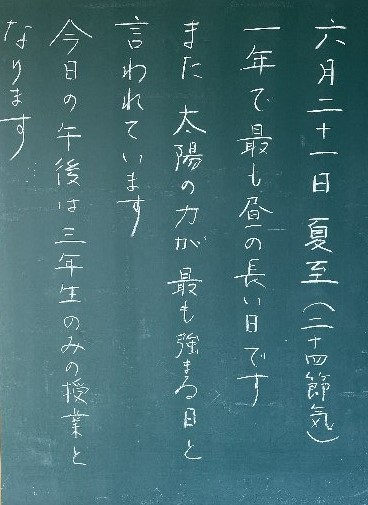 六月二十一日 夏至(二十四節気)
一年で最も昼の長い日です
また 太陽の力が最も強まる日と
言われています
今日の午後は三年生のみの授業と
なります